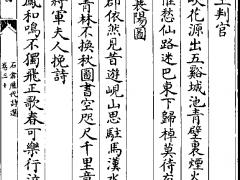 判官
花源出五谿城池青壁裏煙火
愁仙路迷巴東下歸棹莫待
襄陽圖
郡依然見昔遊峴山思駐馬漢水
青林不換秋圖書空咫尺千里意
將軍夫人挽詩
鳳和鳴不獨飛正歌春可樂行泣
石倉歷代詩選
卷三十